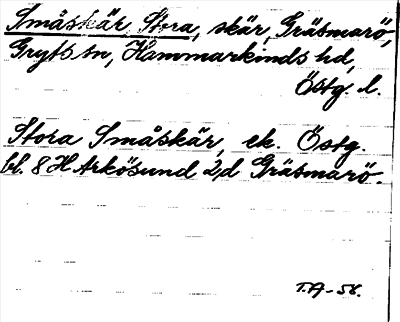 Småskär, Stora, skär, Gräsmarö,
Gryts sn, Hammarkinds hd,
Östg. l.
Stora Småskär, ek. Östg.
bl. 8 H Arkösund 2,d Gräsmarö.
T.A-56.